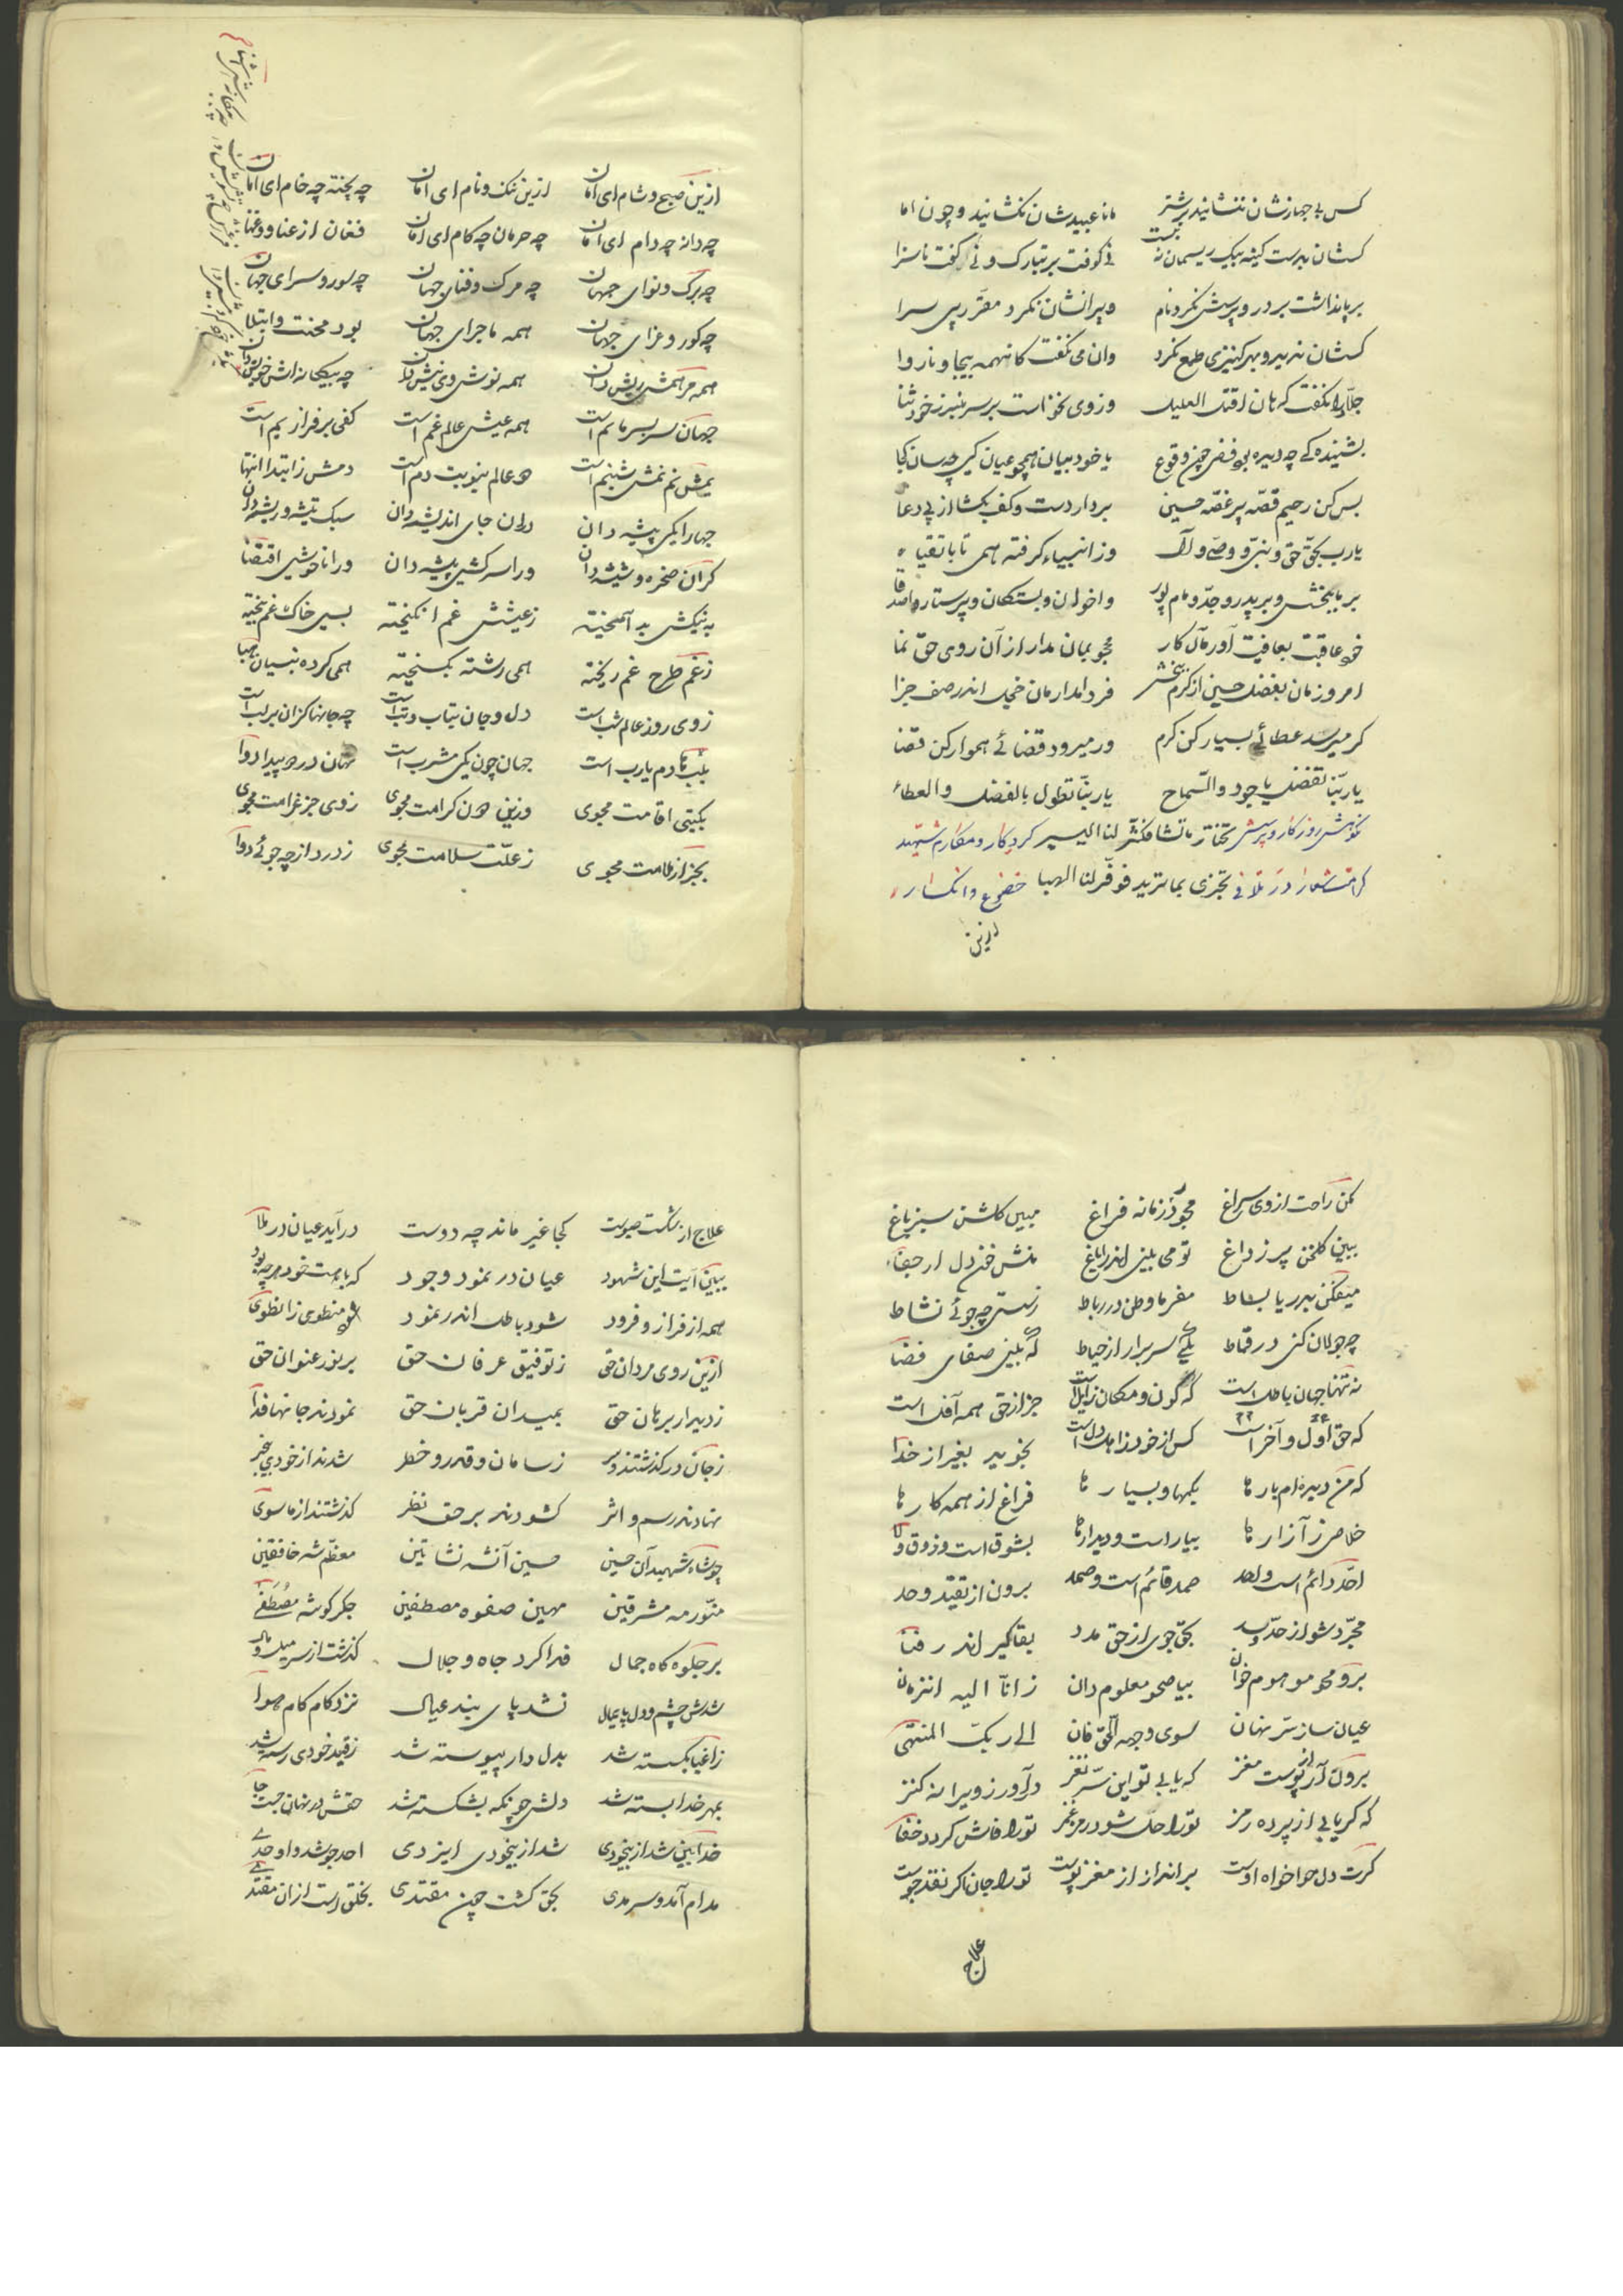 کس بی جهازشان ننشانید بر شتر مانا عبیدشان نکشانید و چون اما
کسشان بدست کینه بیک ریسمان نه بست نی کوفت بر تبارک و نی گفت ناسزا
بر پا نداشت بر در و پرسش نکرد نام ویرانشان نکرد مقر در پی سرا
کسشان ندید و بهر کنیزی طمع نکرد وان می نگفت کانهمه بیجا و ناروا
جلاد را نگفت که هان اقتل العلیل وز وی نخواست بر سر منبر ز خود ثنا
بشنیده کی چه دیده بود فضل چون وقوع با خود بیان همچو عیان کی چه سان کجا
بس کن رحیم قصه پر غصه حسین بردار دست و کف بگشا از پی دعا
یارب بحق حق و نبی و وصی و آل وز انبیاء گرفته همی تا باتقیاء
بر ما ببخش و بر پدر و جد و مام و پور و اخوان و بستگان و پرستار و اصدقا
خود عاقبت بعافیت آور مآل کار محجوبمان مدار از آن روی حق نما
امروزمان بفضل حسین از کرم ببخش فردا مدارمان خجل اندر صف جزا
گر میرسد عطائی بسیار کن کرم ور میرود قضائی هموار کن قضا
یا ربنا تفضل یا جود والسماح یا ربنا تطول بالفضل والعطاء
نکوهش روزگار و پرسش تختار ما تشا فکثر لنا الیسیر کردگار و مکارم شهید
کرامت شعار در تلافی تجزی بما ترید فوفر لنا الهبا خضوع و انکسار
ازین
ازین صبح و شام ای امان ازین ننگ و نام ای امان چه پخته چه خام ای امان
چه دانه چه دام ای امان چه حرمان چه کام ای امان فغان از عنا و عنا
چه برگ و نوای جهان چه مرگ و فنای جهان چه سور و سرای جهان
چه گور و عزای جهان همه ماجرای جهان بود محنت و ابتلا
همه مرهمش ریش دان همه نوش وی نیش دان چه بیگانه اش خویش دان
جهان سربسر ماتم است همه عیش عالم غم است کفی بر فراز یم است
یمش نم نمش شبنم است دو عالم بنوبت دم است دمش ز ابتدا انتها
جهانرا یکی پیشه دان در آن جای اندیشه دان سبک تیشه و ریشه دان
گران صخره و شیشه دان ورا سرکشی پیشه دان ورا ناخوشی اقتضا
به نیکش بد آمیخته ز عیشش غم انگیخته بسی خاک غم بیخته
ز غم طرح غم ریخته همی رشته بگسیخته همی کرده بنیان هبا
ز وی روز عالم شب است دل و جان بتاب و تب است چه جانها کزان بر لب است
بلب دمادم یارب است جهان چون یکی مشرب است نهان درد و پیدا دوا
بگیتی اقامت مجوی وزین دون کرامت مجوی ز وی جز غرامت مجوی
بجز از ملامت مجوی ز علت سلامت مجوی ز درد از چه جوئی دوا
مکن راحت از وی سراغ مجو در زمانه فراغ مبین گلشن سبز باغ
ببین گلخن پر ز داغ تو می بینی اندر ایاغ منش خون دل از جفا
میفکن بدریا بساط مفرما وطن در رباط ز پستی چه جوئی نشاط
چه جولان کنی در قماط یکی سر برآر از حیاط که بینی صفای فضا
نه تنها جهان باطل است که کون و مکان زایل است جز از حق همه آفل است
که حق اول و آخر است کس از خود نه اهل دل است نجوید بغیر از خدا
که من دیده ام بارها یکیها و بسیارها فراغ از همه کارها
خلاص ز آزارها بیار است و دیدارها بشوق است و ذوق و ولا
احد دائم است و لحد صمد قائم است و صمد برون از تقید و حد
مجرد شو از حد و سد بحق جوی از حق مدد بقا گیر اندر فنا
برو محو موهوم خوان بیا صحو معلوم دان ز انا الیه انتزمان
عیان ساز سر نهان سوی وجهه الحق فان الی ربک المنتهی
برون آر از پوست مغز که یابی تو این سر نغز درآور ز ویرانه کنز
که گر یابی از پرده رمز تورا حل شود رمز و غمز تورا فاش گردد خفا
گرت دل هواخواه اوست برانداز از مغز پوست تورا جان اگر نقد جوست
علاج
علاج از شکست صبوست کجا غیر ماند چه دوست درآید عیان در ملا
ببین آیت این شهود عیان در نمود وجود که با هست خود هر چه بود
همه از فراز و فرود شود باطل اندر نمود منطوی ز انطوی
ازین روی مردان حق ز توفیق عرفان حق بر نور عنوان حق
ز دیدار برهان حق بمیدان قربان حق نمودند جانها فدا
ز جان درگذشتند و سر ز سامان و قدر و خطر شدند از خودی بیخبر
نهادند رسم و اثر گشودند بر حق نظر گذشتند از ماسوی
چو شاه شهیدان حسین حسین آن شه نشاتین معظم شه خافقین
منور مه مشرقین مهین صفوه مصطفین جگر گوشه مصطفی
بر جلوه گاه جمال فدا کرد جاه و جلال گذشت از سر میل و مال
شدش چشم و دل پایمال نشد پای بند عیال نزد گام کام هوا
ز اغیار بگسسته شد بدلدار پیوسته شد ز قید خودی رسته شد
بمهر خدا بسته شد دلش چونکه بشکسته شد حقش در نهان جست جا
خدا بین شد از بیخودی شد از بیخودی ایزدی احد جو شد و اوحدی
مدام آمد و سرمدی بحق گشت چون مقتدی بخلق است ازان مقتدا